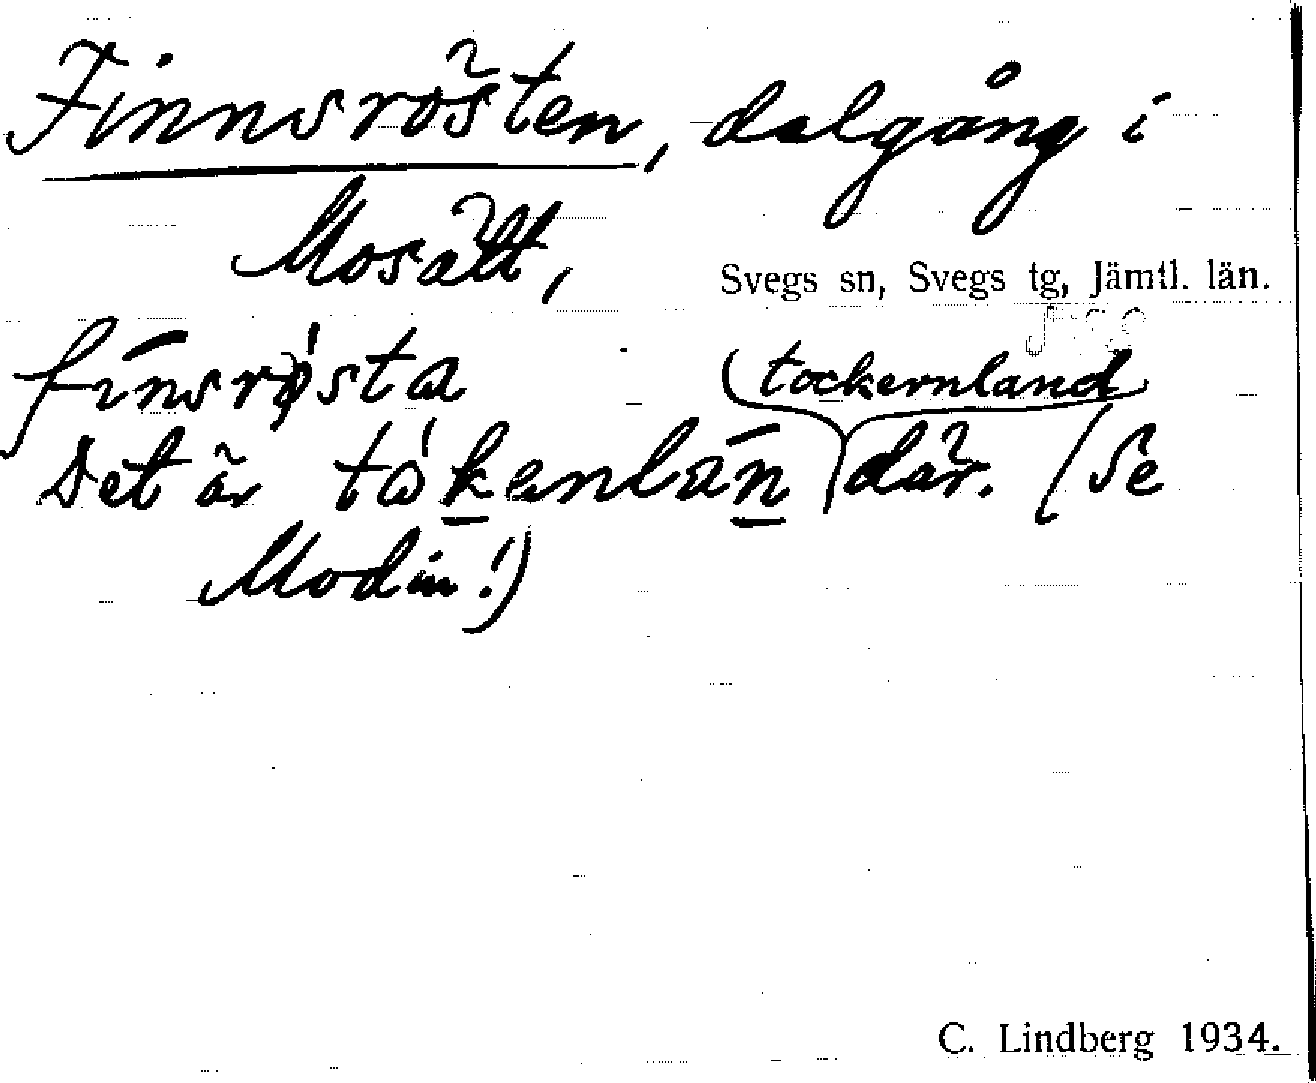 Finnsrösten, dalgång i
Mosätt,
Svegs sn, Svegs tg, Jämtl. län.
finsrǿsta
(tockernland)
Det är tòkenlan där. (Se
Modin!)
C. Lindberg 1934.